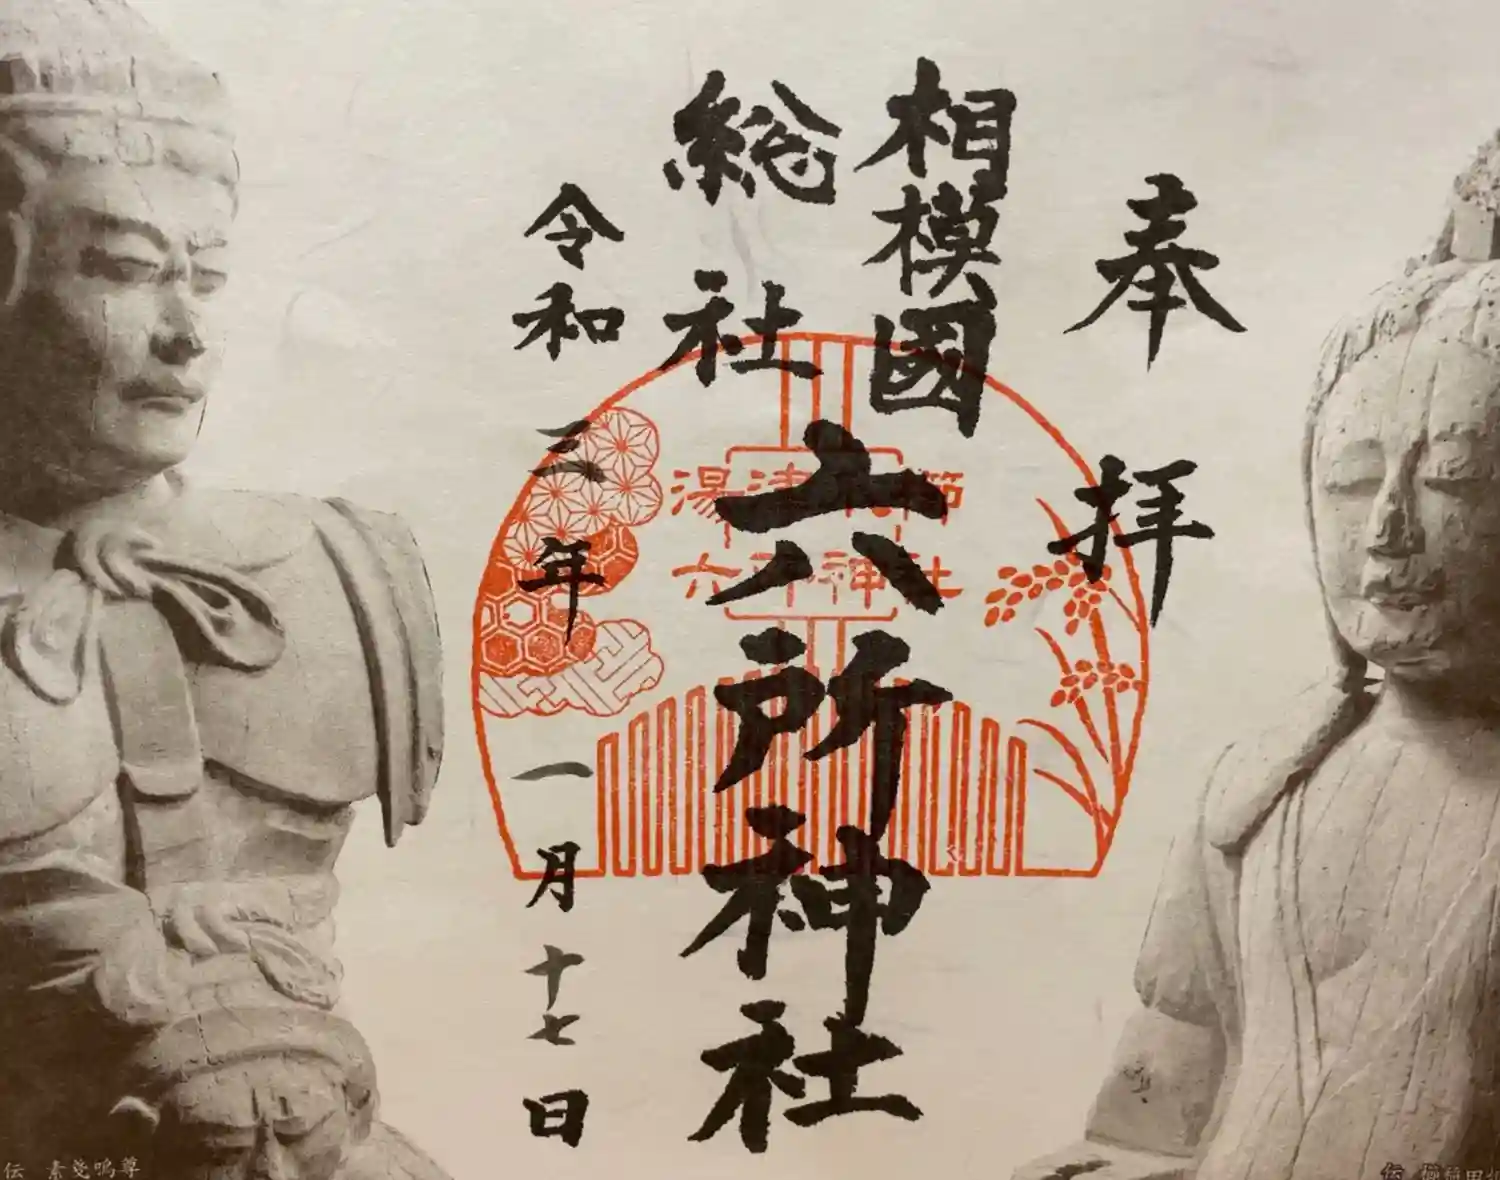 奉拝
相模國
総社
六所神社
令和三年
一月十七日
湯津
六所神社
伝 素戔嗚尊
伝 櫛稲田